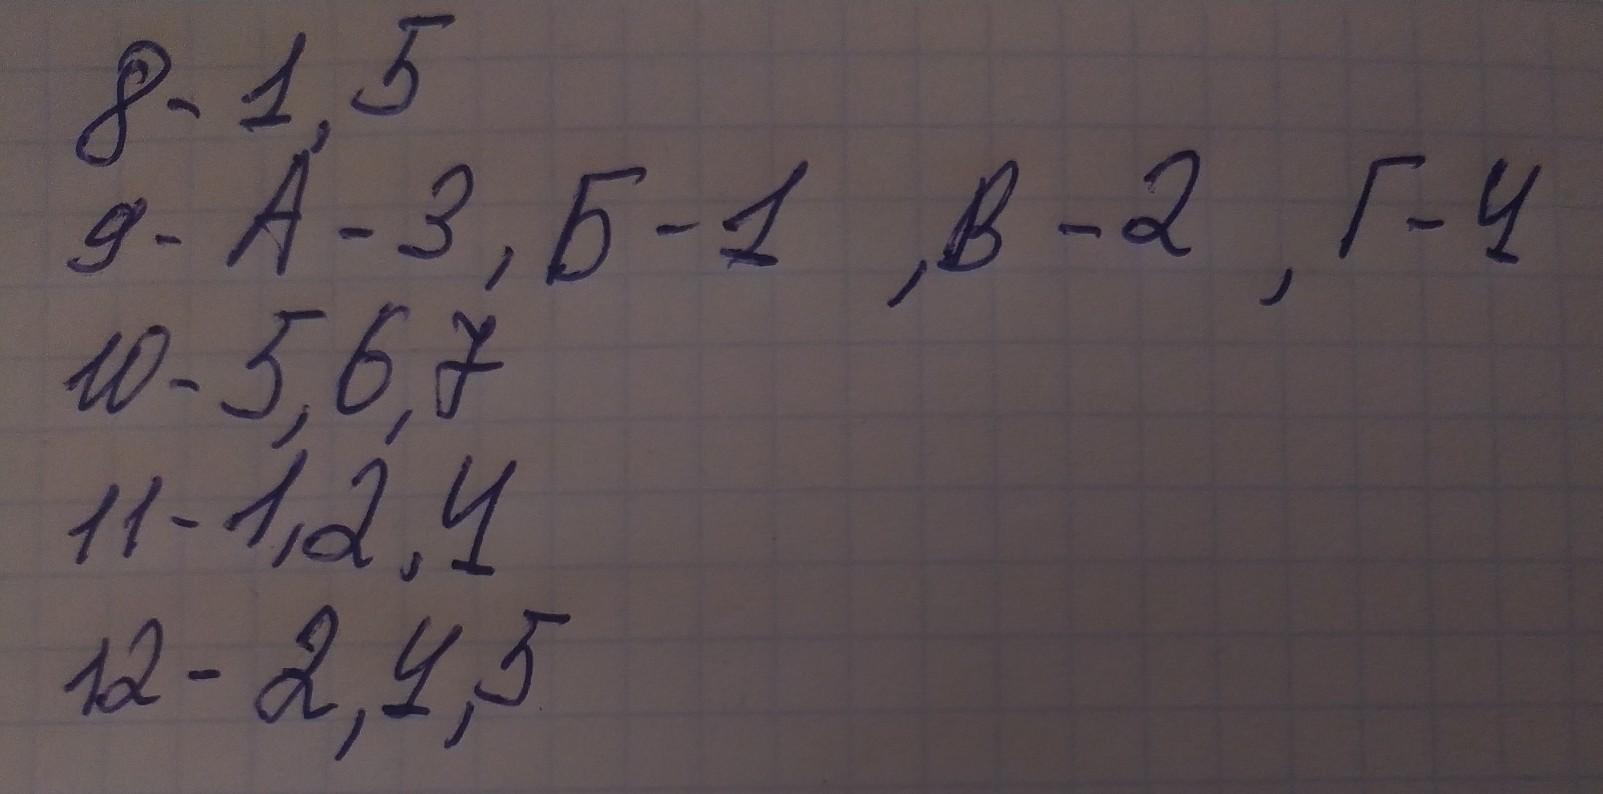 8- 1, 5
9- А - 3, Б - 1 , В - 2 , Г - 4
10- 5, 6, 7
11- 1, 2, 4
12 - 2, 4, 5